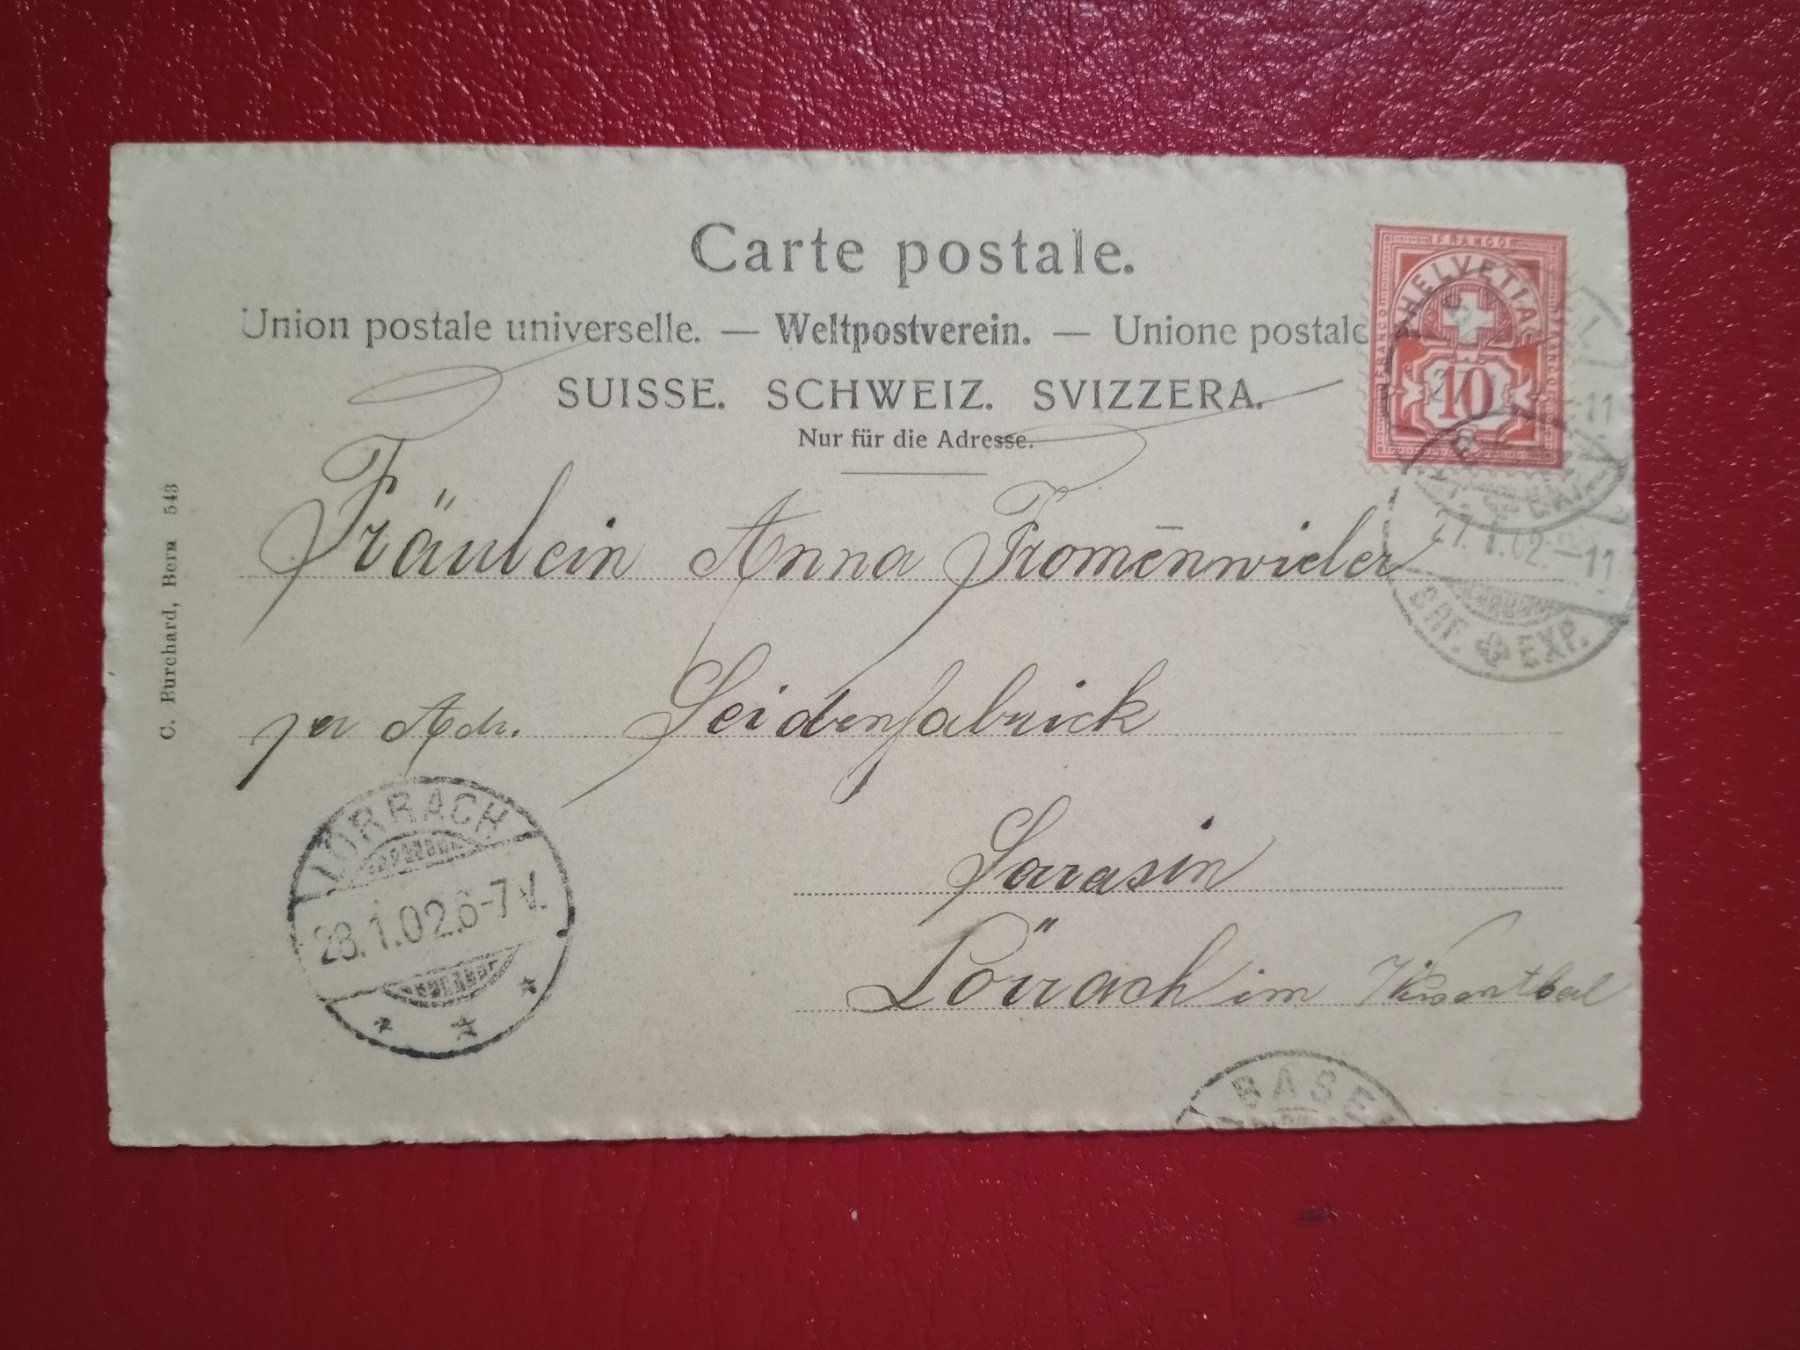 Carte postale.
Union postale universelle. — Weltpostverein. — Unione postale
SUISSE. SCHWEIZ. SVIZZERA.
Nur für die Adresse.
FRANCO
HELVETIA
10
Fräulein Anna Fromēnwieler
per Adr. Seidenfabrick
Sarasin
Lörrach im Wiesenthal
C. Burchard, Bern 543
LÖRRACH
28.1.02.6-7V.
27.I.02.-11
BRF. EXP.
BASEL